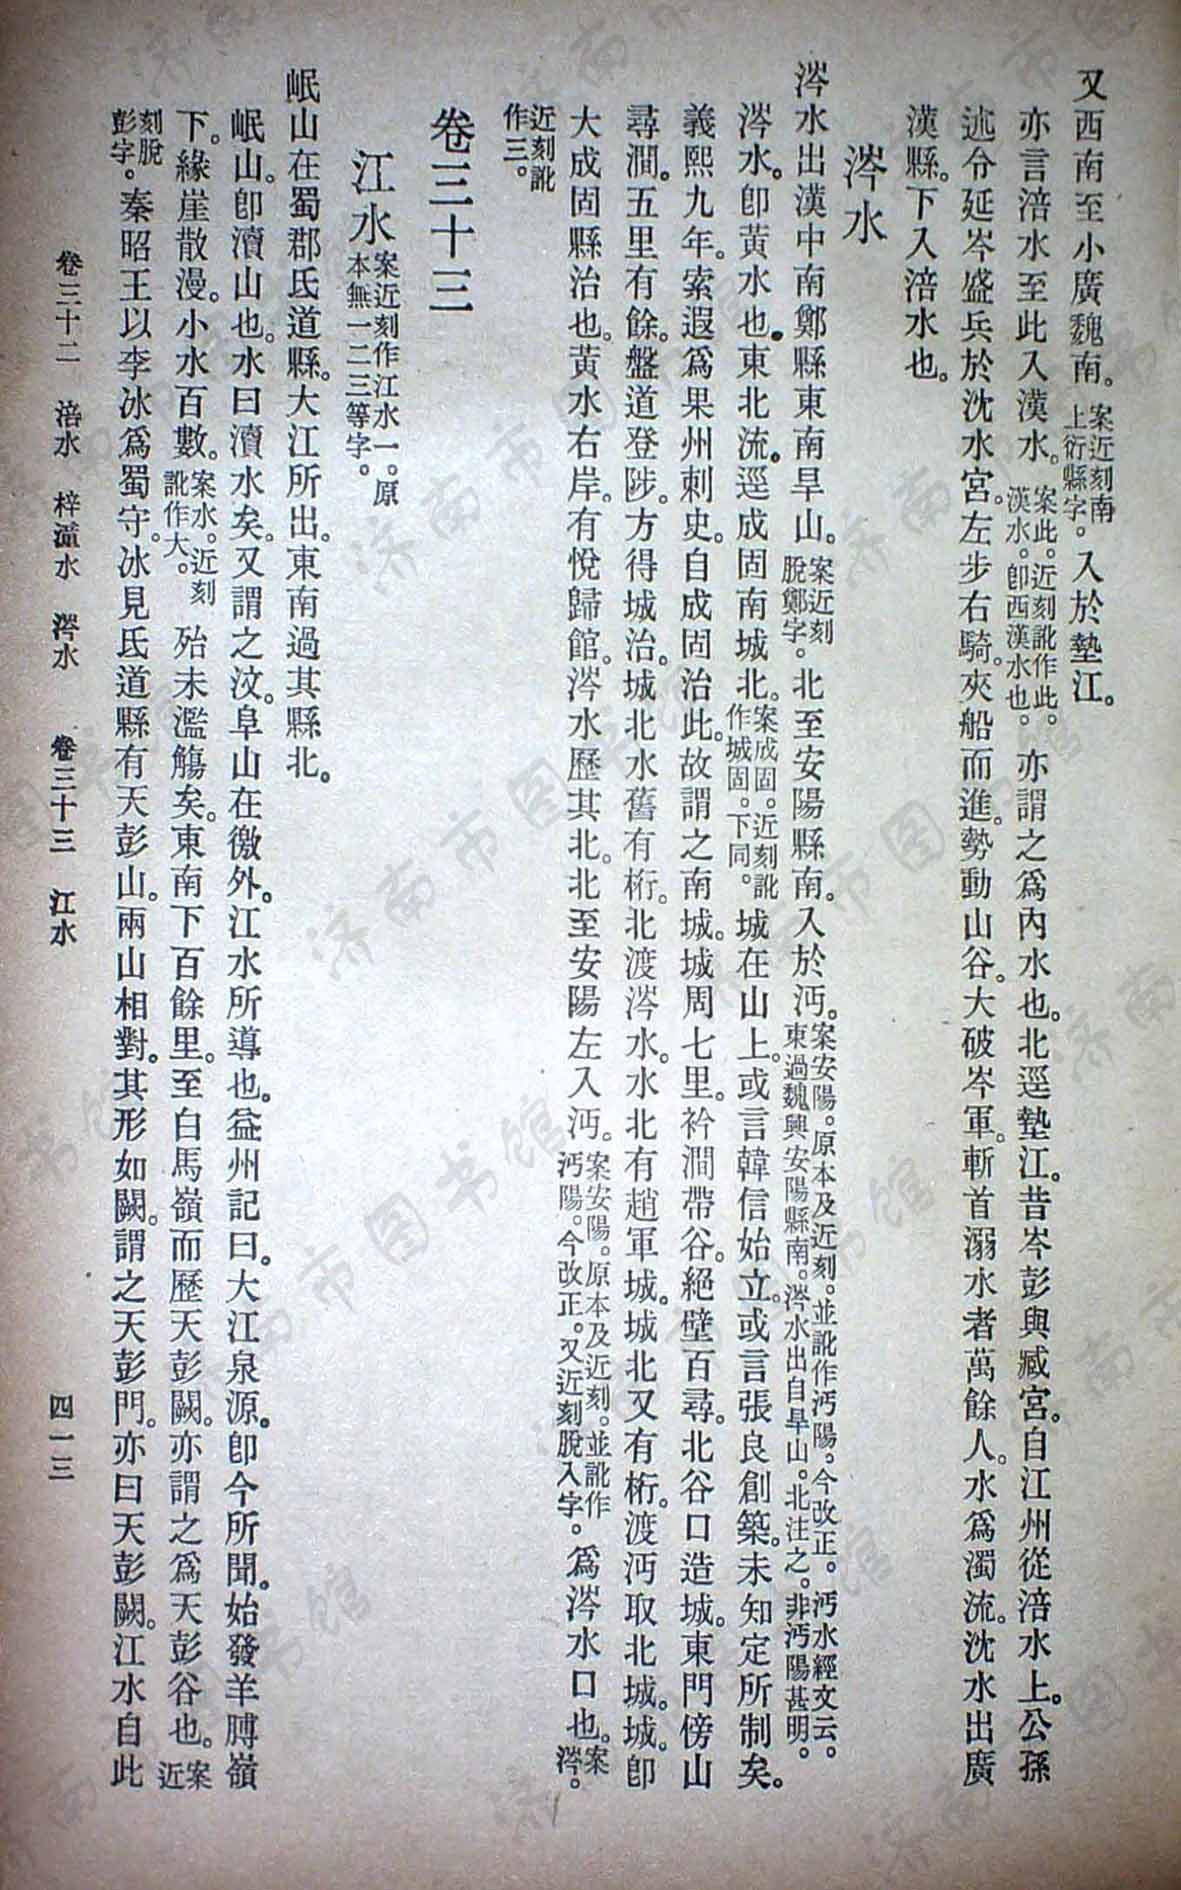 又西南至小廣魏南。案近刻南上衍縣字。入於墊江。
亦言涪水至此入漢水。案此。近刻訛作此。漢水。卽西漢水也。亦謂之爲內水也。北逕墊江。昔岑彭與臧宮。自江州從涪水上。公孫
述令延岑盛兵於沈水宮。左步右騎。夾船而進。勢動山谷。大破岑軍。斬首溺水者萬餘人。水爲濁流。沈水出廣
漢縣。下入涪水也。
涔水
涔水出漢中南鄭縣東南旱山。案近刻脫鄭字。北至安陽縣南。入於沔。案安陽。原本及近刻。並訛作沔陽。今改正。沔水經文云。東過魏興安陽縣南。涔水出自旱山。北注之。非沔陽甚明。
涔水。卽黃水也。東北流。逕成固南城北。案成固。近刻訛作城固。下同。城在山上。或言韓信始立。或言張良創築。未知定所制矣。
義熙九年。索遐爲果州刺史。自成固治此。故謂之南城。城周七里。衿澗帶谷。絕壁百尋。北谷口造城。東門傍山
尋澗。五里有餘。盤道登陟。方得城治。城北水舊有桁。北渡涔水。水北有趙軍城。城北又有桁。渡沔取北城。城。卽
大成固縣治也。黃水右岸。有悅歸館。涔水歷其北。北至安陽左入沔。案安陽。原本及近刻。並訛作沔陽。今改正。又近刻脫入字。爲涔水口也。案涔。
近刻訛作三。
卷三十三
江水案近刻作江水一。原本無一二三等字。
岷山在蜀郡氐道縣。大江所出。東南過其縣北。
岷山。卽瀆山也。水曰瀆水矣。又謂之汶。阜山在徼外。江水所導也。益州記曰。大江泉源。卽今所聞。始發羊膊嶺
下。緣崖散漫。小水百數。案水。近刻訛作大。殆未濫觴矣。東南下百餘里。至白馬嶺而歷天彭闕。亦謂之爲天彭谷也。案近
刻脫彭字。秦昭王以李冰爲蜀守。冰見氐道縣有天彭山。兩山相對。其形如闕。謂之天彭門。亦曰天彭闕。江水自此
卷三十二 涪水 梓潼水 涔水 卷三十三 江水 四一三
济南市图书馆